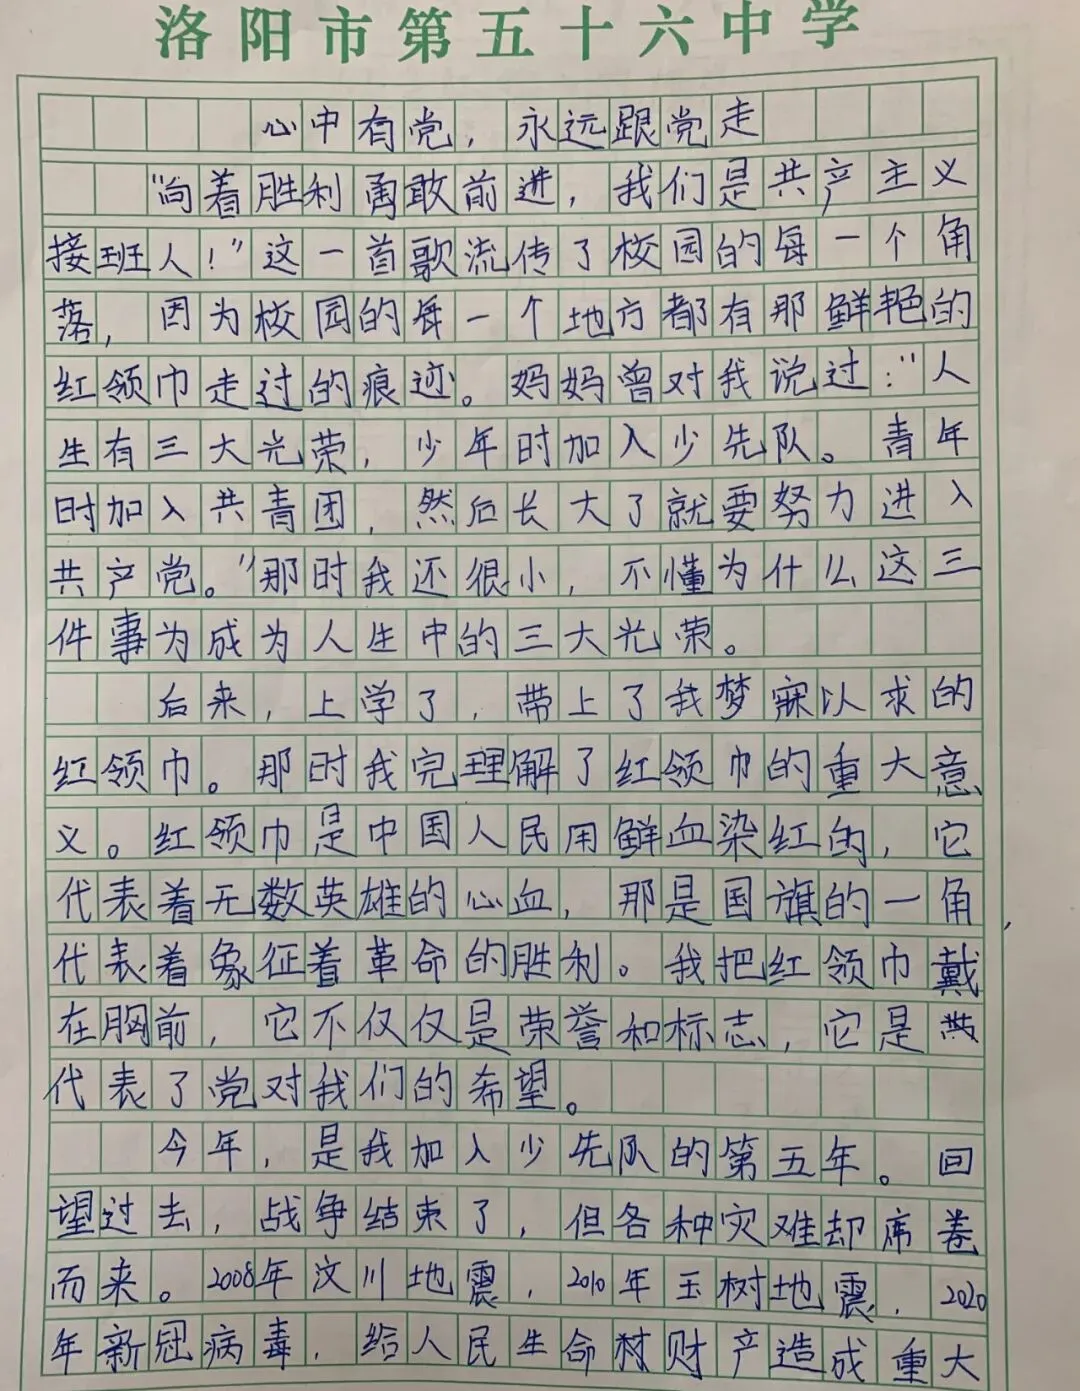 洛阳市第五十六中学
心中有党，永远跟党走
"向着胜利勇敢前进，我们是共产主义
接班人！"这一首歌流传了校园的每一个角
落，因为校园的每一个地方都有那鲜艳的
红领巾走过的痕迹。妈妈曾对我说过："人
生有三大光荣，少年时加入少先队。青年
时加入共青团，然后长大了就要努力进入
共产党。"那时我还很小，不懂为什么这三
件事为成为人生中的三大光荣。
后来，上学了，带上了我梦寐以求的
红领巾。那时我完理解了红领巾的重大意
义。红领巾是中国人民用鲜血染红的，它
代表着无数英雄的心血，那是国旗的一角，
代表着象征着革命的胜利。我把红领巾戴
在胸前，它不仅仅是荣誉和标志，它是
代表了党对我们的希望。
今年，是我加入少先队的第五年。回
望过去，战争结束了，但各种灾难却席卷
而来。2008年汶川地震，2010年玉树地震，2020
年新冠病毒，给人民生命财产造成重大